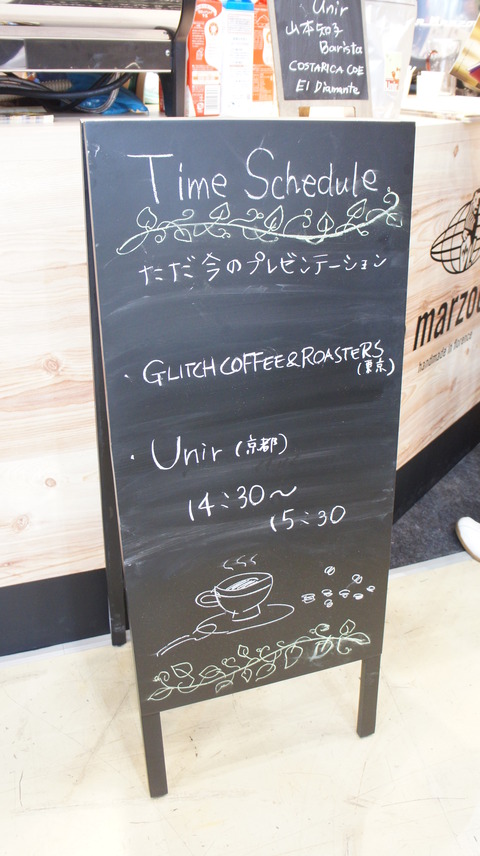 Unir
山本知子
Barista
COSTARICA COE
El Diamante
Time Schedule
ただ今のプレゼンテーション
・GLITCH COFFEE & ROASTERS
(東京)
・Unir (京都)
14:30〜
15:30
handmade in florence